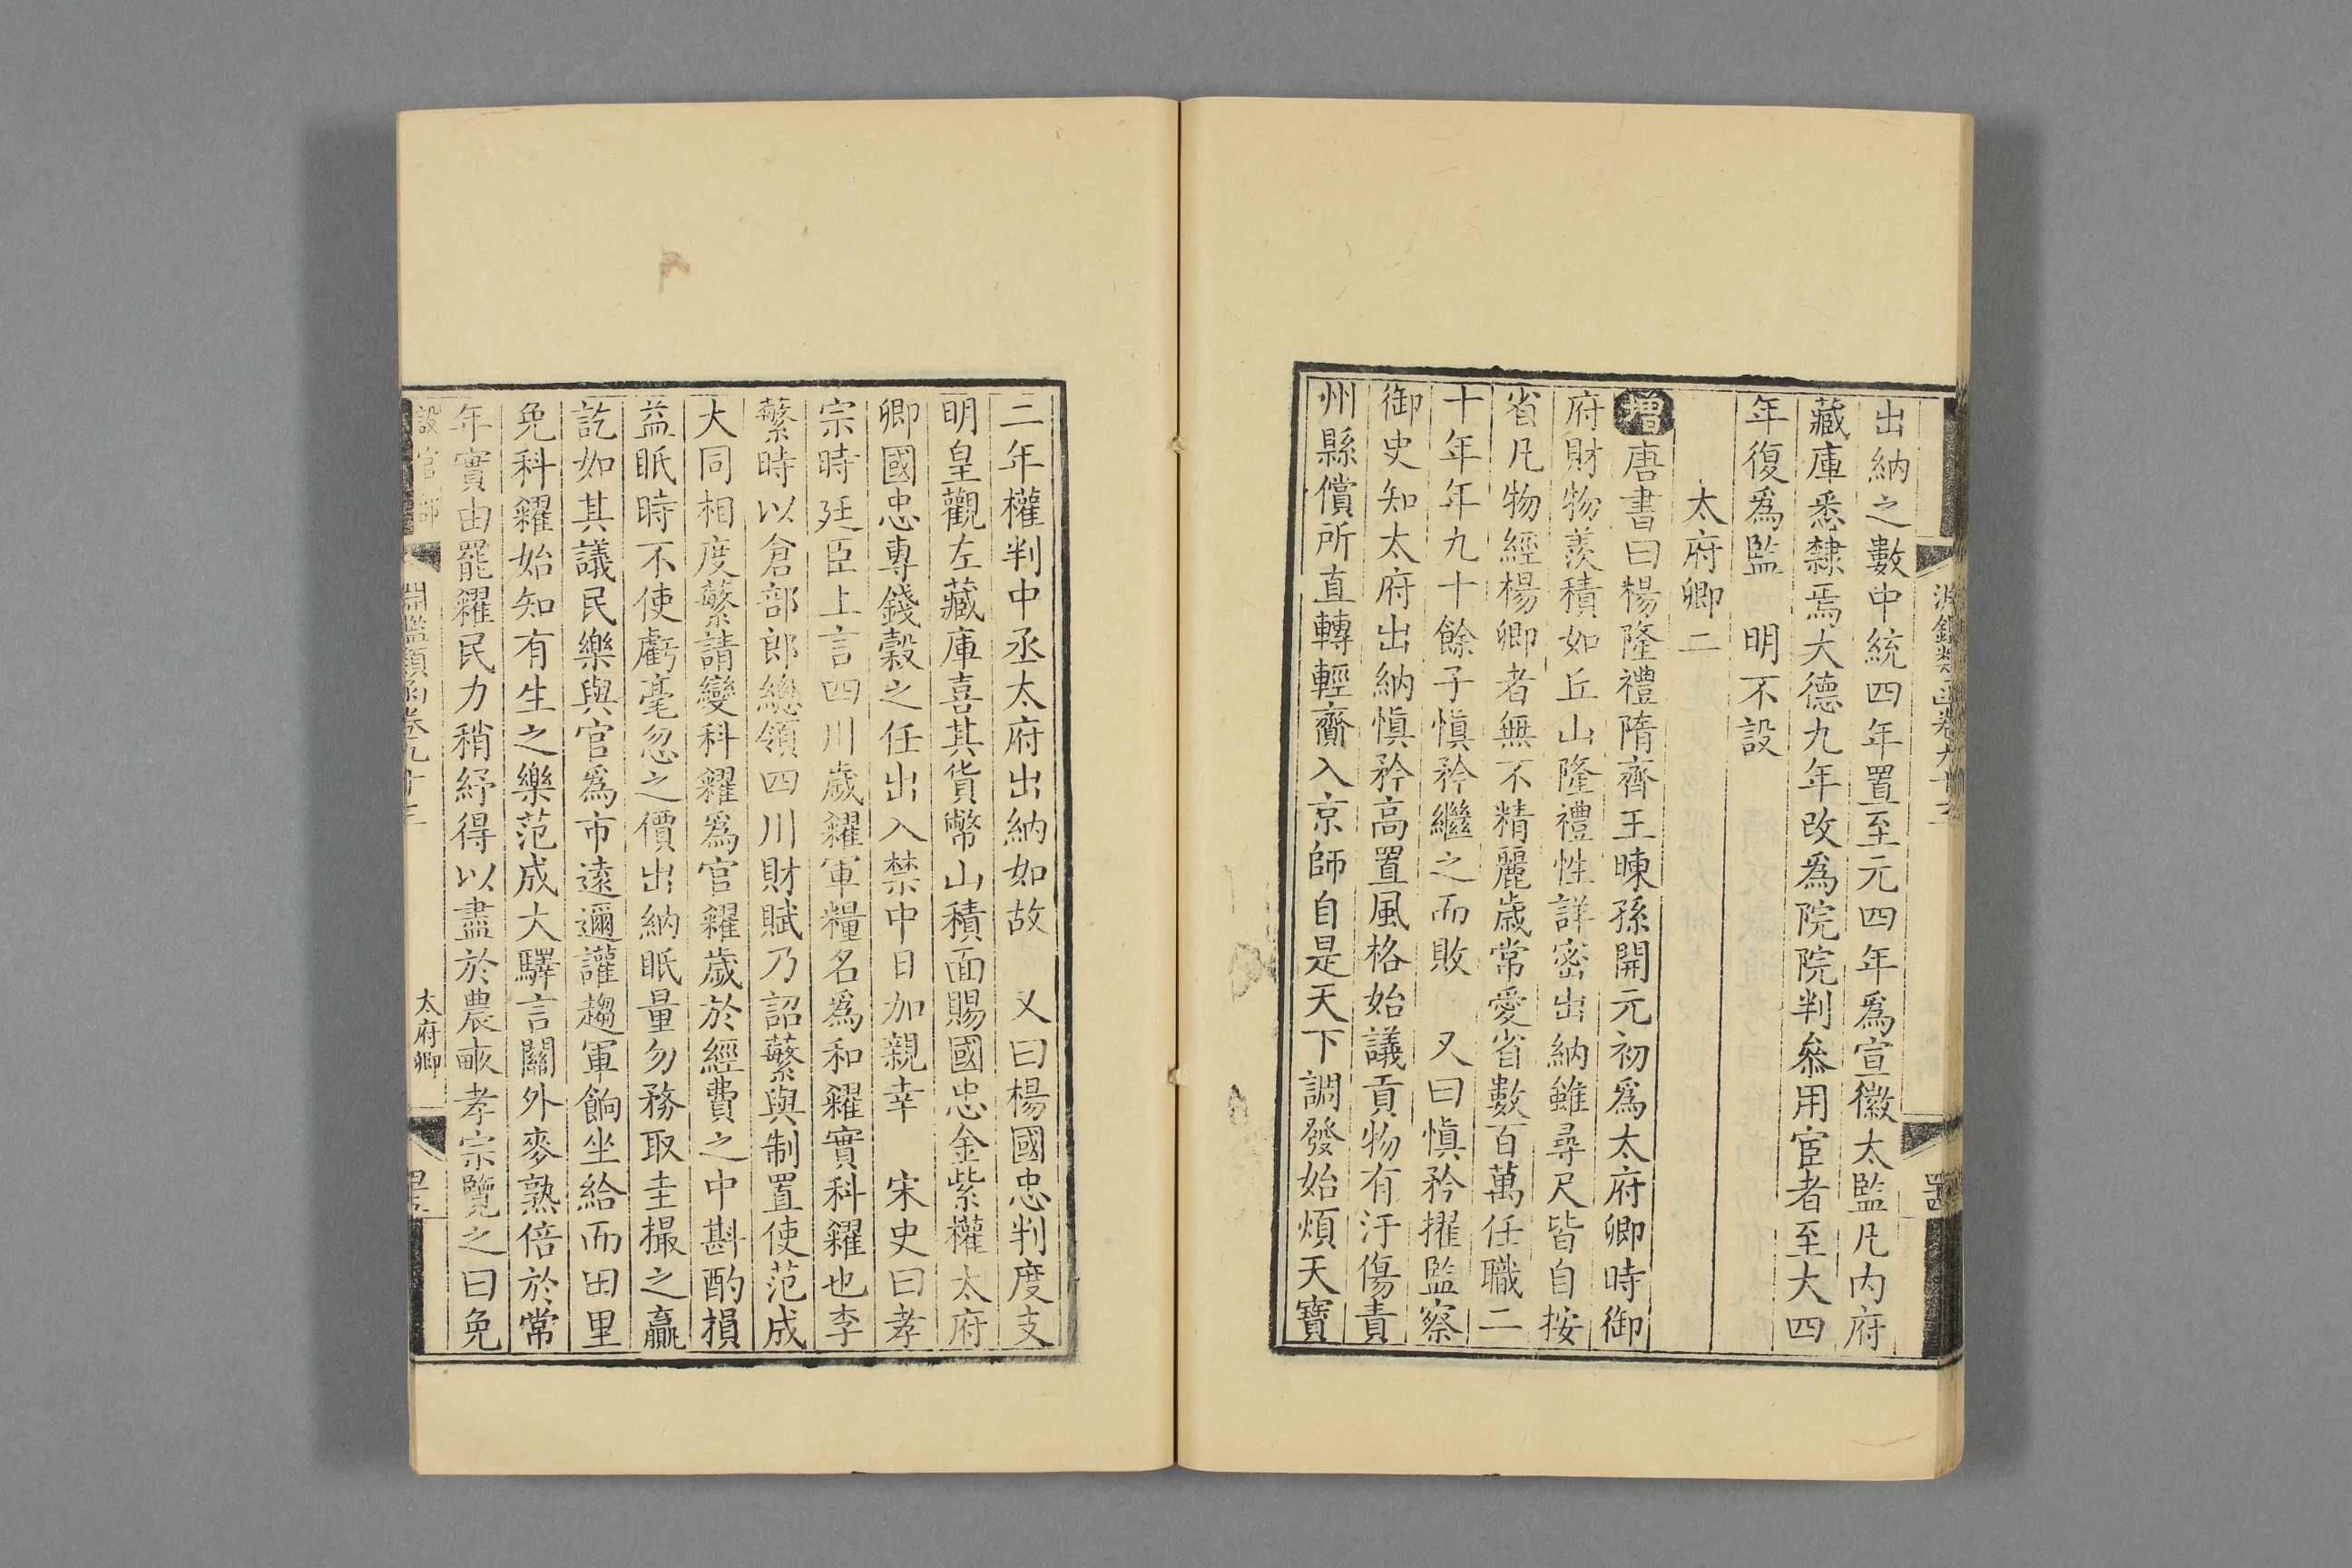 出納之數中統四年置至元四年爲宣徽太監凡内府
藏庫悉隸焉大德九年改爲院院判叅用宦者至大四
年復爲監　明不設
太府卿二
增唐書曰楊隆禮隋齊王暕孫開元初爲太府卿時御
府財物羨積如丘山隆禮性詳密出納雖尋尺皆自按
省凡物經楊卿者無不精麗歲常愛省數百萬任職二
十年年九十餘子愼矜繼之而敗　又曰愼矜擢監察
御史知太府出納愼矜高置風格始議貢物有汙傷責
州縣償所直轉輕齎入京師自是天下調發始煩天寶
二年權判中丞太府出納如故　又曰楊國忠判度支
明皇觀左藏庫喜其貨幣山積面賜國忠金紫權太府
卿國忠專錢穀之任出入禁中日加親幸　宋史曰孝
宗時廷臣上言四川歲糴軍糧名爲和糴實科糴也李
蘩時以倉部郎總領四川財賦乃詔蘩與制置使范成
大同相度蘩請變科糴爲官糴歲於經費之中斟酌損
益眂時不使虧毫忽之價出納眂量勿務取圭撮之贏
訖如其議民樂與官爲市遠邇讙趨軍餉坐給而田里
免科糴始知有生之樂范成大驛言關外麥熟倍於常
年實由罷糴民力稍紓得以盡於農畝孝宗覽之曰免
設官部
淵鑑類函卷九十三
太府卿